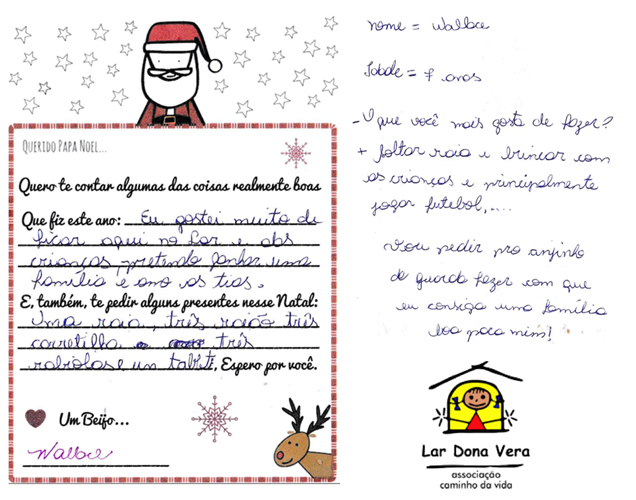 QUERIDO PAPA NOEL...
Quero te contar algumas das coisas realmente boas
Que fiz este ano: Eu gostei muito de
ficar aqui no Lar e das
crianças, pretendo ganhar uma
família e amo as tias.
E, também, te pedir alguns presentes nesse Natal:
Uma raia, três raião três
carretilha três
rabiolas e um Espero por você.
Um Beijo...
Wallace
nome = Wallace
Idade = 7 anos
- O que você mais gosta de fazer?
+ Soltar raia e brincar com
as crianças e principalmente
jogar futebol,....
Vou pedir pro anjinho
de guarda fazer com que
eu consiga uma família
boa para mim!
Lar Dona Vera
associação
caminho da vida